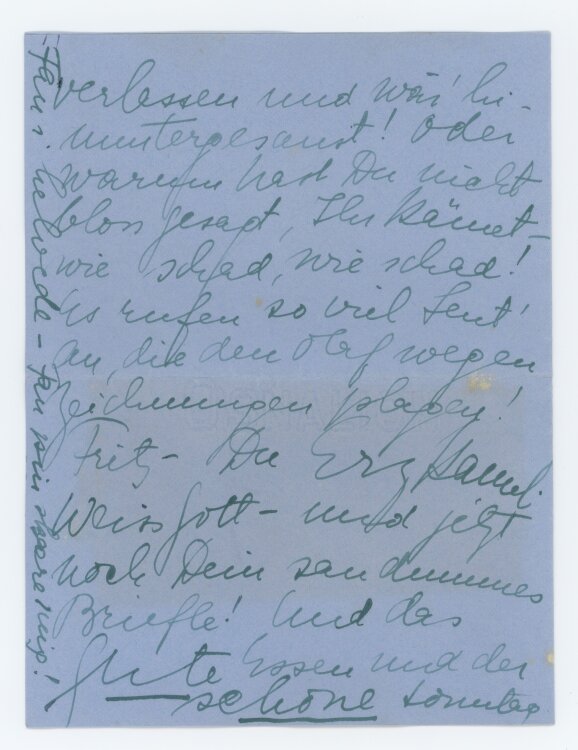 verlassen und wär' hi-
nuntergesaust! Oder
warum hast Du nicht
blos gesagt, Ihr kämet-
wie schad, wie schad!
Es rufen so viel Leut'
an, die den Olaf wegen
Zeichnungen plagen!
Fritz - Du Erz
Weiss Gott - und jetzt
noch Dein saudummes
Briefle! Und das
gute Essen und der
schöne Sonntag